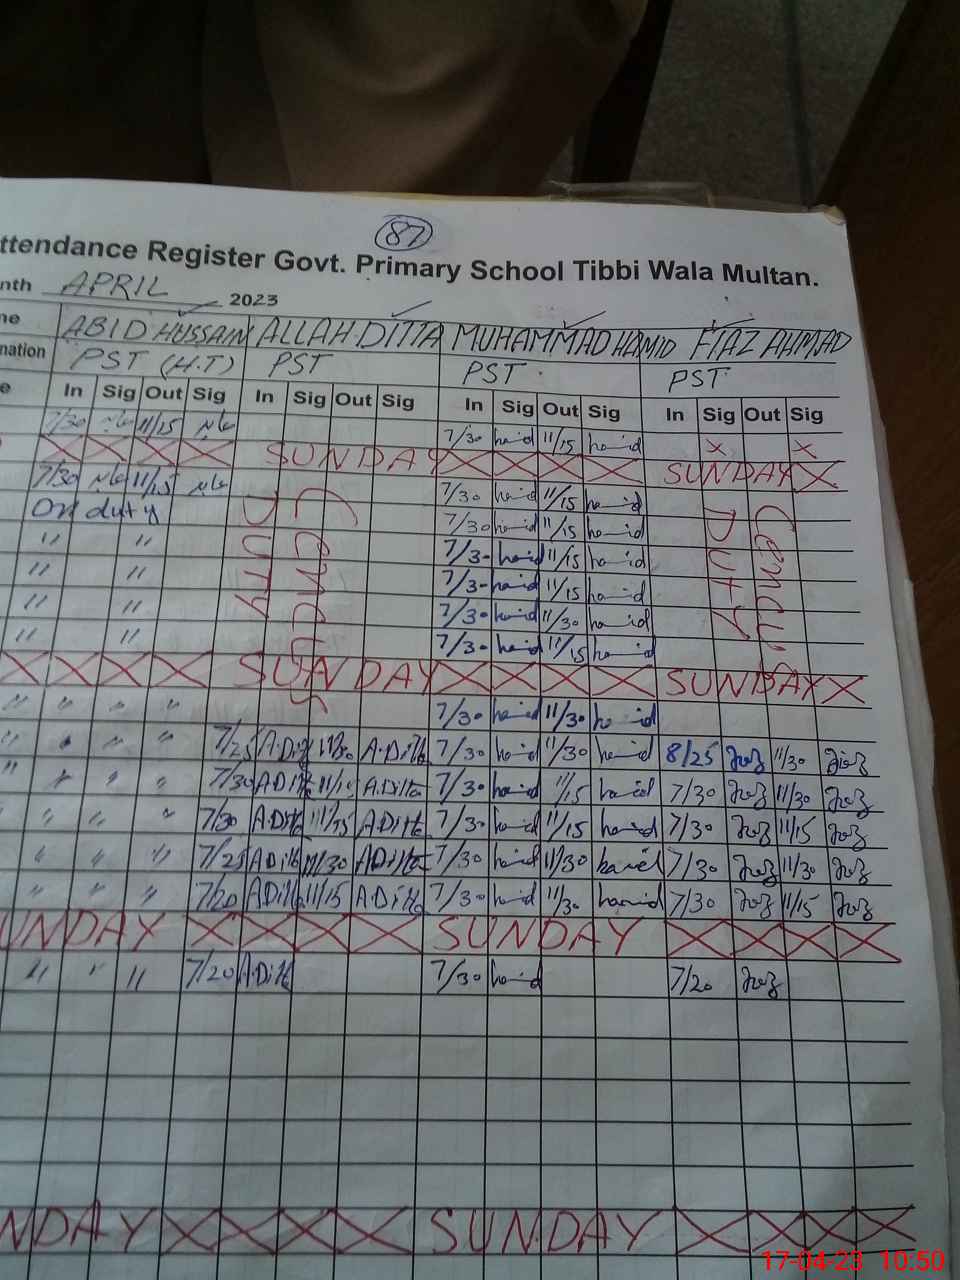 87
ttendance Register Govt. Primary School Tibbi Wala Multan.
nth APRIL 2023
me ABID HUSSAIN ALLAH.DITTA MUHAMMAD HAMID FIAZ AHMAD
nation PST (H.T) PST PST PST
e In Sig Out Sig In Sig Out Sig In Sig Out Sig In Sig Out Sig
7/30 11/15 7/30 hamid 11/15 hamid x x
SUNDAY SUNDAY
7/30 11/15 7/30 hamid 11/15 hamid
On duty 7/30 hamid 11/15 hamid
" " 7/3- hamid 11/15 hamid
" " 7/3- hamid 11/15 hamid
" " 7/3- hamid 11/30 hamid
" " 7/3- hamid 11/15 hamid
Duty Census Duty Census
SUNDAY SUNDAY
" " " " 7/30 hamid 11/30 hamid
" " " " 7/25 A.Ditta 11/30 A.Ditta 7/30 hamid 11/30 hamid 8/25 11/30
" " " " 7/30 A.Ditta 11/15 A.Ditta 7/30 hamid 11/15 hamid 7/30 11/30
" " " 7/30 A.Ditta 11/15 A.Ditta 7/30 hamid 11/15 hamid 7/30 11/15
" " " 7/25 A.Ditta 11/30 A.Ditta 7/30 hamid 11/30 hamid 7/30 11/30
" " " 7/20 A.Ditta 11/15 A.Ditta 7/30 hamid 11/30 hamid 7/30 11/15
UNDAY SUNDAY
" " " 7/20 A.Ditta 7/30 hamid 7/20
NDAY SUNDAY
17-04-23 10:50